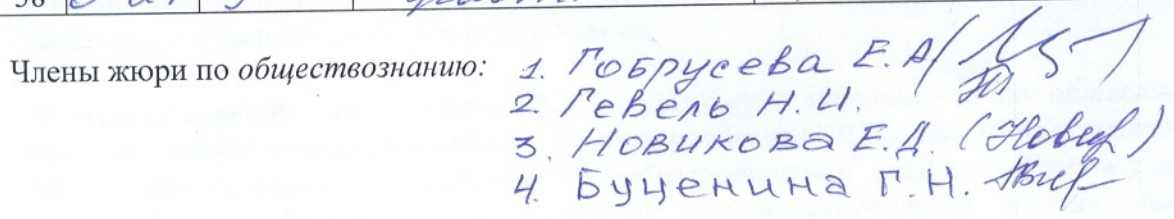 Члены жюри по обществознанию: 1. Гобрусева Е.А
2. Гевель Н.И.
3. Новикова Е.Д. (Новик)
4. Буценина Г.Н.